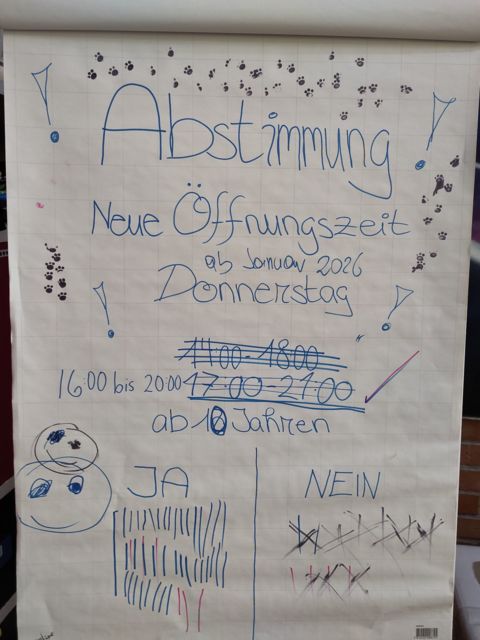 Abstimmung
Neue Öffnungszeit
ab Januar 2026
Donnerstag
14:00-18:00
16:00 bis 20:00 17:00-21:00
ab 10 Jahren
JA NEIN